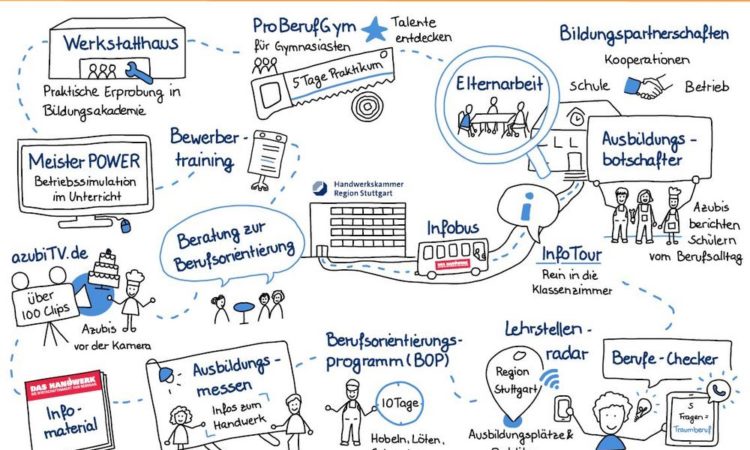 Werkstatthaus
Praktische Erprobung in
Bildungsakademie
ProBerufGym
für Gymnasiasten
Talente
entdecken
5 Tage Praktikum
Elternarbeit
Bildungspartnerschaften
Kooperationen
Schule
Betrieb
Meister POWER
Betriebssimulation
im Unterricht
Bewerber-
training
Ausbildungs-
botschafter
Azubis
berichten
Schülern
vom Berufsalltag
Handwerkskammer
Region Stuttgart
Beratung zur
Berufsorientierung
Infobus
DAS HANDWERK
i
InfoTour
Rein in die
Klassenzimmer
azubiTV.de
über
100 Clips
Azubis
vor der Kamera
DAS HANDWERK
Info-
material
Ausbildungs-
messen
Infos zum
Handwerk
Berufsorientierungs-
programm (BOP)
10 Tage
Hobeln, Löten,
Lehrstellen-
radar
Region
Stuttgart
Ausbildungsplätze &
Berufe-Checker
5
Fragen =
Traumberuf